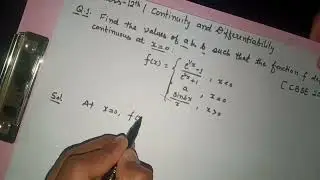 12th | Continuity and Differentiability
Q.1. Find the values of a, b, such that the function f
continuous at x=0.
[CBSE 20
f(x)= { e^{1/x}-1 / e^{1/x}+1 , x<0
a , x=0
sinbx / x , x>0
Sol At x=0, f(